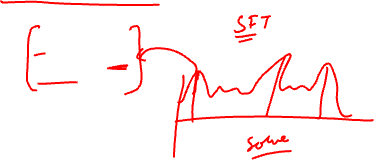 SFT
solve